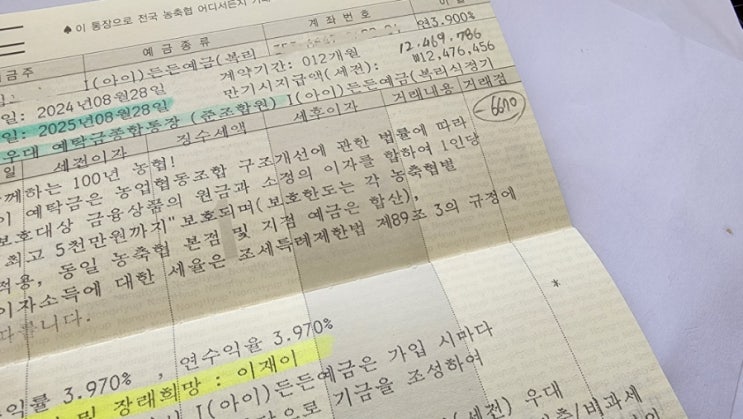 ♠ 이 통장으로 전국 농축협 어디서든지
예 금 종 류
계 좌 번 호
연3.900%
I(아이)든든예금(복리
계약기간: 012개월
12,469,786
만기시지급액(세전): ₩12,476,456
일: 2024년08월28일
일: 2025년08월28일
I(아이)든든예금(복리식정기
우대 예탁금종합통장 (준조합원)
-6670
세전이자
징수세액
세후이자
거래내용
거래점
께하는 100년 농협!
이 예탁금은 농업협동조합 구조개선에 관한 법률에 따라
보호대상 금융상품의 원금과 소정의 이자를 합하여 1인당
최고 5천만원까지" 보호되며(보호한도는 각 농축협별
적용, 동일 농축협 본점 및 지점 예금은 합산),
이자소득에 대한 세율은 조세특례제한법 제89조 3의 규정에
따릅니다.
*
익률 3.970% , 연수익율 3.970%
및 장래희망 : 이재이
I(아이)든든예금은 가입 시마다
으로 기금을 조성하여
(세전) 우대
/비과세